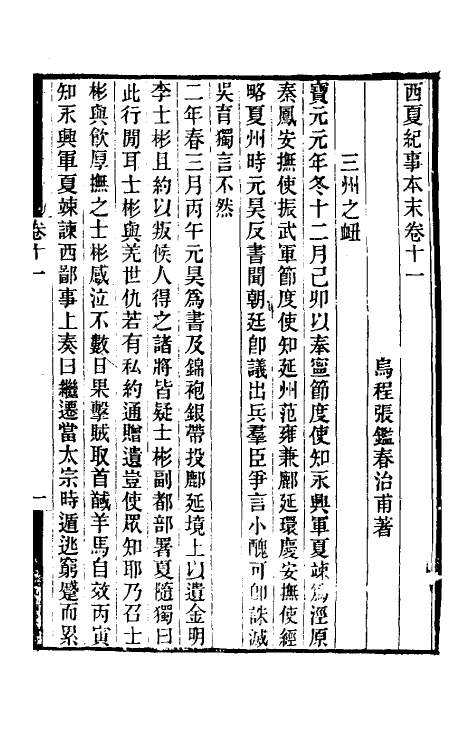 西夏紀事本末卷十一
烏程張鑑春治甫著
三州之衄
寶元元年冬十二月己卯以奉寧節度使知永興軍夏竦爲涇原
秦鳳安撫使振武軍節度使知延州范雍兼鄜延環慶安撫使經
略夏州時元昊反書聞朝廷卽議出兵羣臣爭言小醜可卽誅滅
吳育獨言不然
二年春三月丙午元昊爲書及錦袍銀帶投鄜延境上以遺金明
李士彬且約以叛候人得之諸將皆疑士彬副都部署夏隨獨曰
此行閒耳士彬與羌世仇若有私約通贈遺豈使眾知耶乃召士
彬與飲厚撫之士彬感泣不數日果擊賊取首馘羊馬自效丙寅
知永興軍夏竦諫西鄙事上奏曰繼遷當太宗時遁逃窮蹙而累
卷十一
一